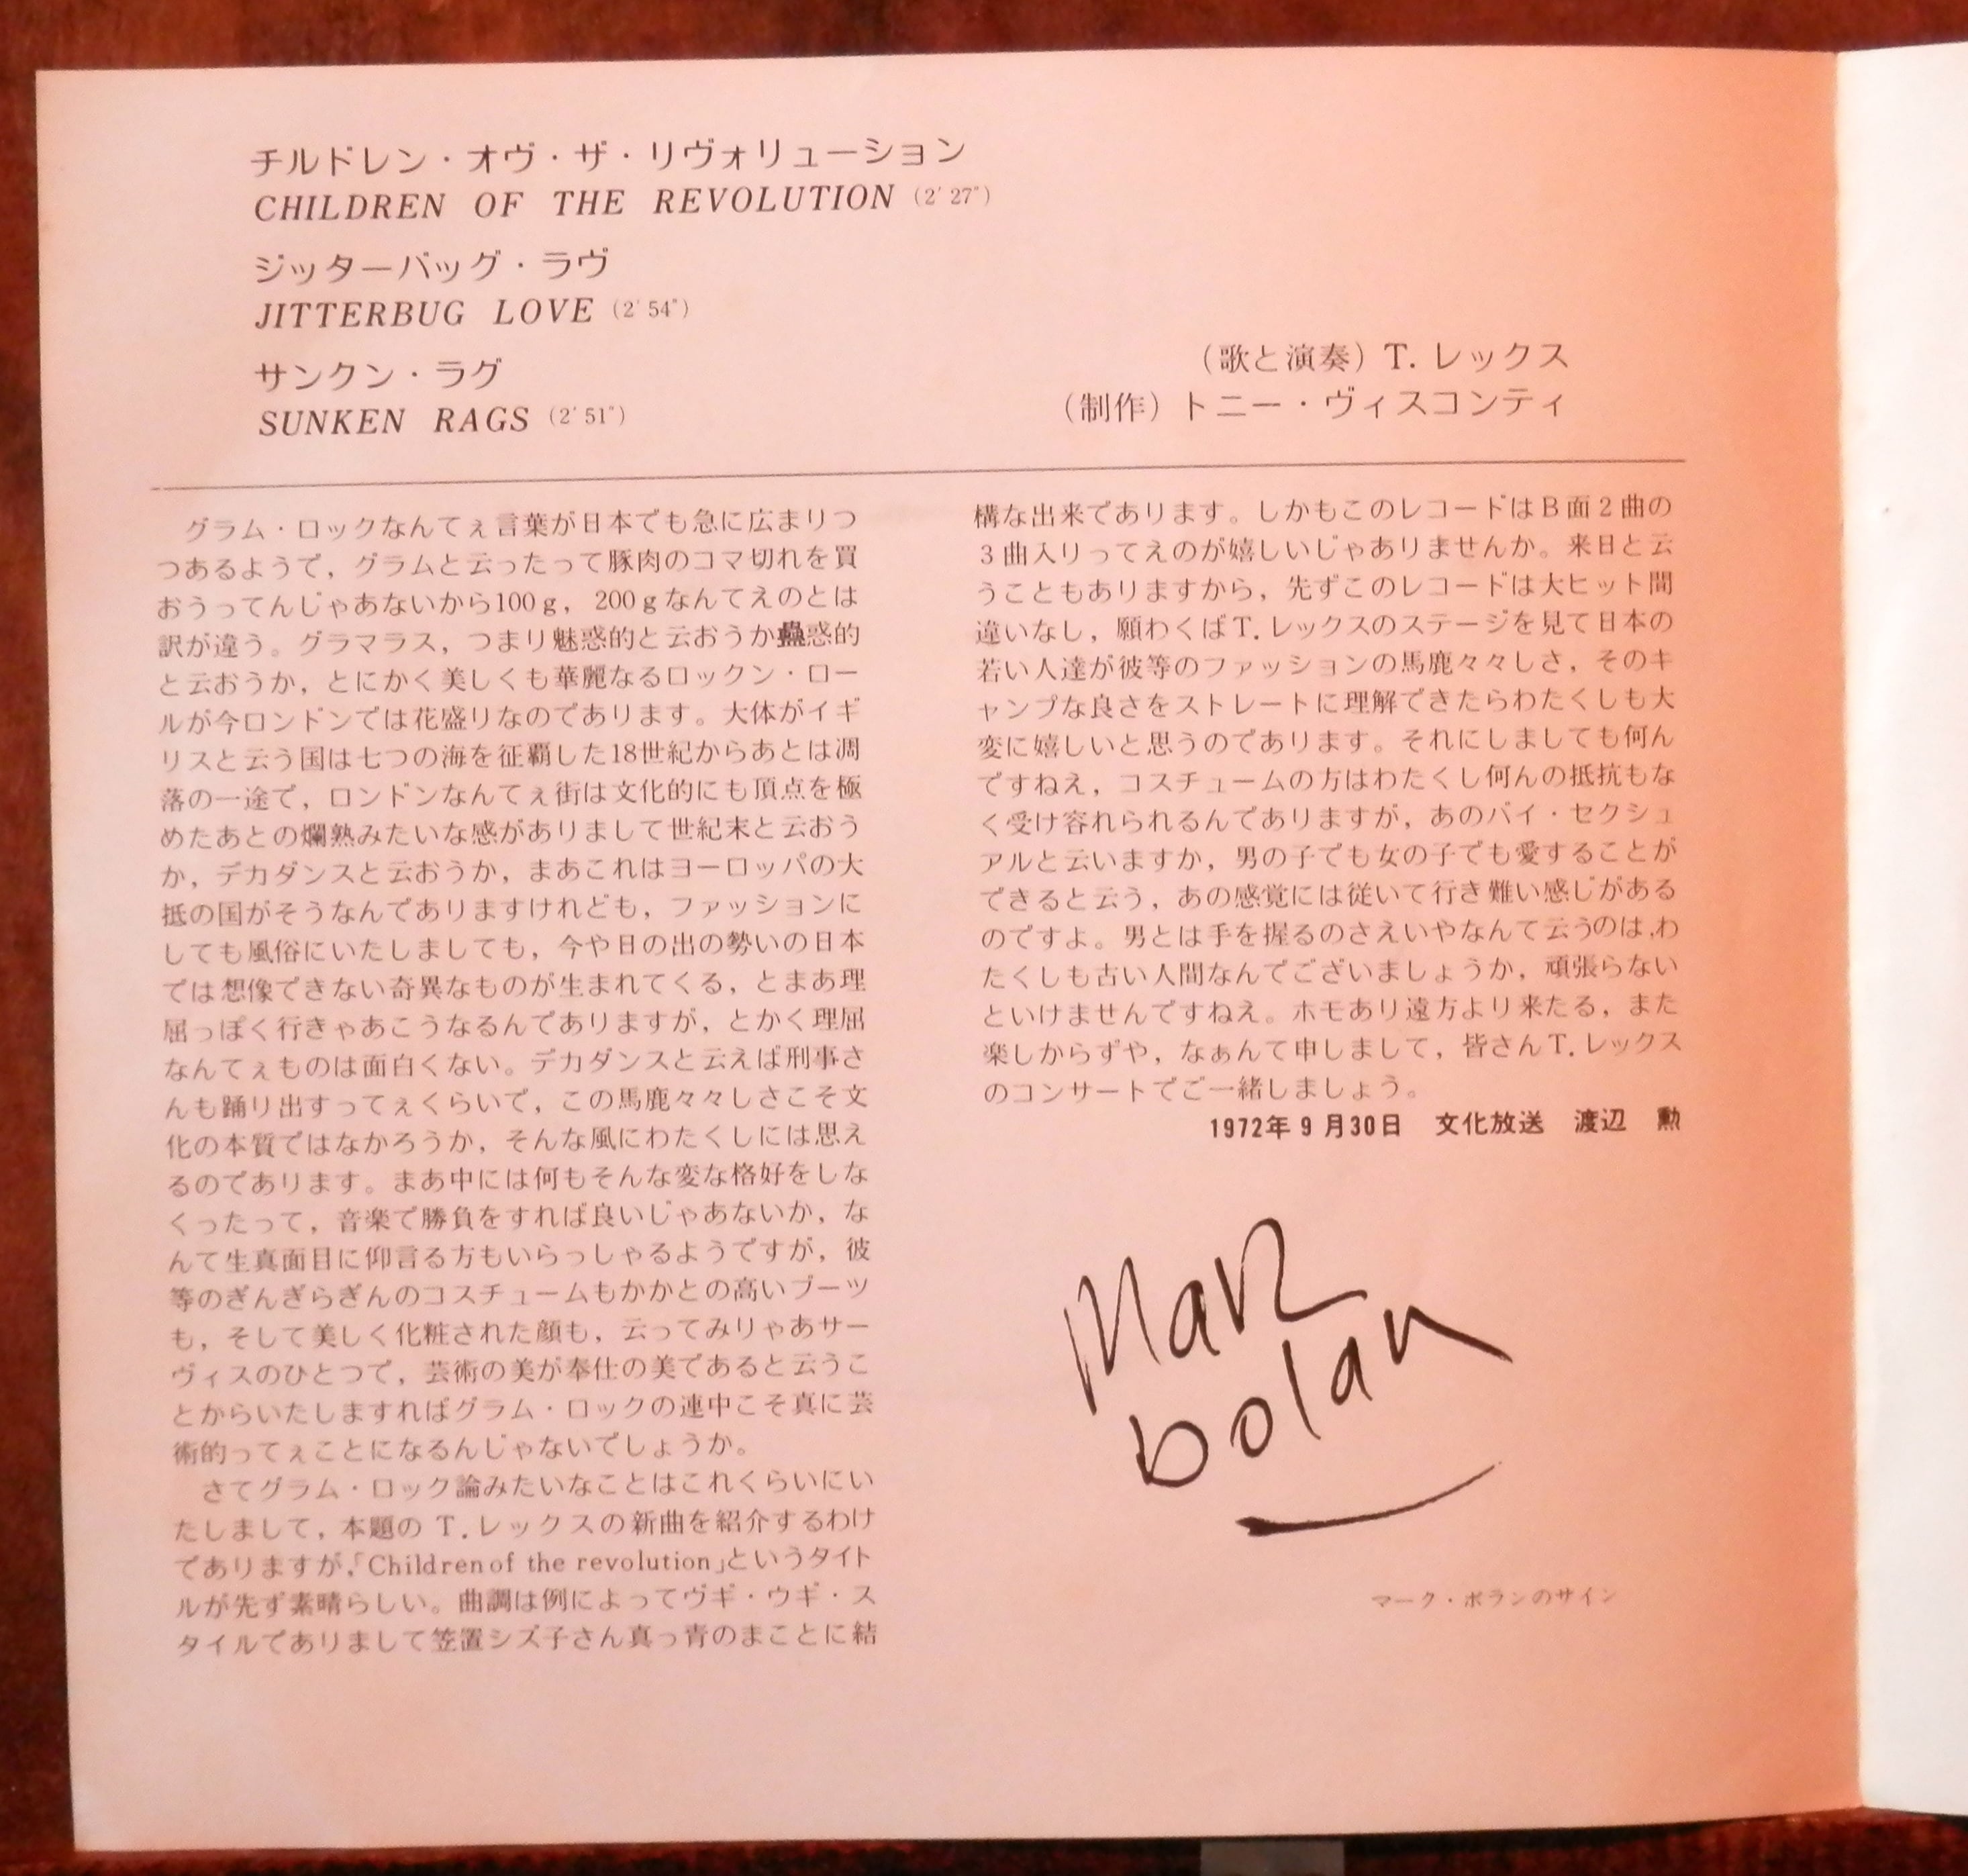 チルドレン・オヴ・ザ・リヴォリューション
CHILDREN OF THE REVOLUTION (2′27″)
ジッターバッグ・ラヴ
JITTERBUG LOVE (2′54″)
サンクン・ラグ
SUNKEN RAGS (2′51″)
(歌と演奏) T. レックス
(制作) トニー・ヴィスコンティ
グラム・ロックなんてぇ言葉が日本でも急に広まりつ
つあるようで，グラムと云ったって豚肉のコマ切れを買
おうってんじゃあないから100g，200gなんてえのとは
訳が違う。グラマラス，つまり魅惑的と云おうか蠱惑的
と云おうか，とにかく美しくも華麗なるロックン・ロー
ルが今ロンドンでは花盛りなのであります。大体がイギ
リスと云う国は七つの海を征覇した18世紀からあとは凋
落の一途で，ロンドンなんてぇ街は文化的にも頂点を極
めたあとの爛熟みたいな感がありまして世紀末と云おう
か，デカダンスと云おうか，まあこれはヨーロッパの大
抵の国がそうなんでありますけれども，ファッションに
しても風俗にいたしましても，今や日の出の勢いの日本
では想像できない奇異なものが生まれてくる，とまあ理
屈っぽく行きゃあこうなるんでありますが，とかく理屈
なんてぇものは面白くない。デカダンスと云えば刑事さ
んも踊り出すってぇくらいで，この馬鹿々々しさこそ文
化の本質ではなかろうか，そんな風にわたくしには思え
るのであります。まあ中には何もそんな変な格好をしな
くったって，音楽で勝負をすれば良いじゃあないか，な
んて生真面目に仰言る方もいらっしゃるようですが，彼
等のぎんぎらぎんのコスチュームもかかとの高いブーツ
も，そして美しく化粧された顔も，云ってみりゃあサー
ヴィスのひとつで，芸術の美が奉仕の美であると云うこ
とからいたしますればグラム・ロックの連中こそ真に芸
術的ってぇことになるんじゃないでしょうか。
さてグラム・ロック論みたいなことはこれくらいにい
たしまして，本題の T. レックスの新曲を紹介するわけ
でありますが，「Children of the revolution」というタイト
ルが先ず素晴らしい。曲調は例によってヴギ・ウギ・ス
タイルでありまして笠置シズ子さん真っ青のまことに結
構な出来であります。しかもこのレコードはB面2曲の
3曲入りってえのが嬉しいじゃありませんか。来日と云
うこともありますから，先ずこのレコードは大ヒット間
違いなし，願わくばT. レックスのステージを見て日本の
若い人達が彼等のファッションの馬鹿々々しさ，そのキ
ャンプな良さをストレートに理解できたらわたくしも大
変に嬉しいと思うのであります。それにしましても何ん
ですねえ，コスチュームの方はわたくし何んの抵抗もな
く受け容れられるんでありますが，あのバイ・セクシュ
アルと云いますか，男の子でも女の子でも愛することが
できると云う，あの感覚には従いて行き難い感じがある
のですよ。男とは手を握るのさえいやなんて云うのは，わ
たくしも古い人間なんでございましょうか，頑張らない
といけませんですねえ。ホモあり遠方より来たる，また
楽しからずや，なぁんて申しまして，皆さんT. レックス
のコンサートでご一緒しましょう。
1972年9月30日 文化放送 渡辺 勲
Marc
bolan
マーク・ボランのサイン